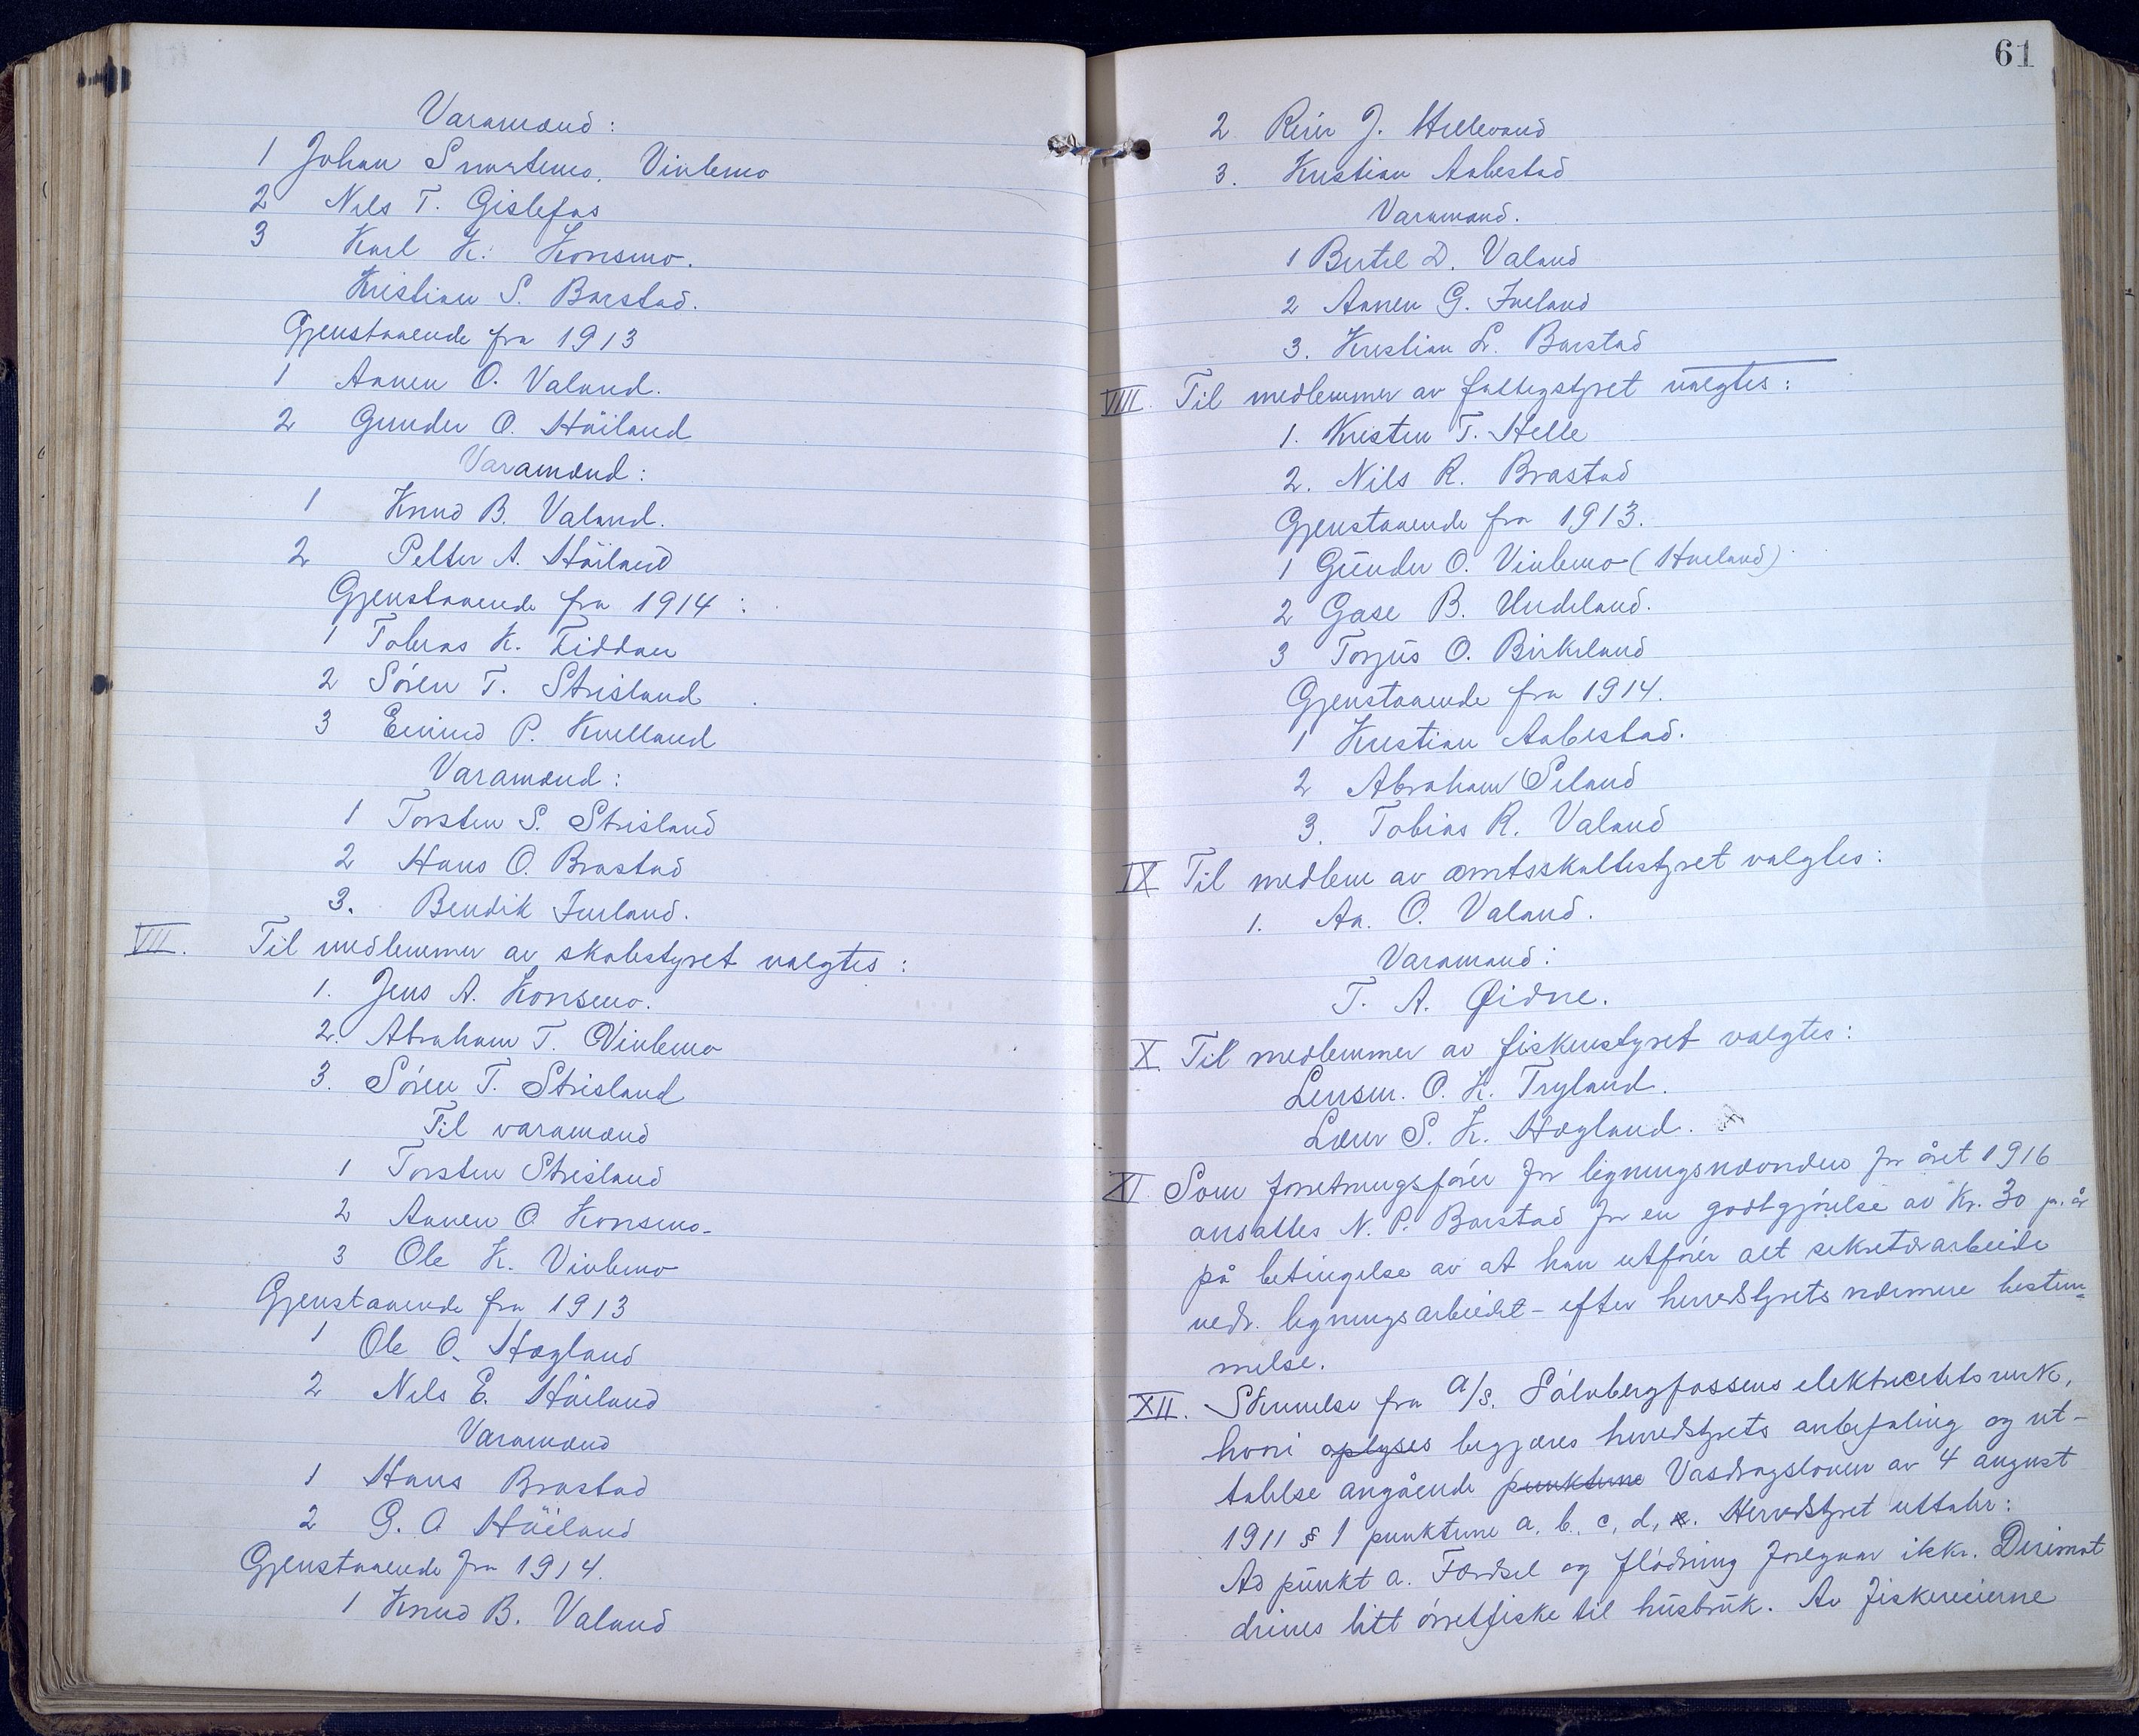 Varamænd:
1 Johan Smustemo, Vinlemo
2 Nils T. Gislefos
3 Karl K. Konsmo.
Kristian S. Barstad.
Gjenstaaende fra 1913
1 Aanen O. Valand.
2 Gunder O. Häiland
Varamænd:
1 Knud B. Valand.
2 Petter A. Häiland
Gjenstaaende fra 1914:
1 Tobias K. Fiddan
2 Sören T. Strisland
3 Eivind P. Kvelland
Varamænd:
1 Torsten S. Strisland
2 Hans O. Brastad
3. Bendik Iveland.
VII. Til medlemmer av skolestyret valgtes:
1. Jens A. Konsmo.
2. Abraham T. Vinlemo
3. Sören T. Strisland
Til varamænd
1 Torsten Strisland
2 Aanen O Konsmo
3 Ole K. Vinlemo
Gjenstaaende fra 1913
1 Ole O. Høgland
2 Nils E. Häiland
Varamænd
1 Hans Brastad
2 G. O Häiland
Gjenstaaende fra 1914.
1 Knud B. Valand
61
2 Reier J. Hellevand
3. Kristian Aabestad
Varamænd.
1 Bertel D. Valand
2 Aanen G. Iveland
3. Kristian L. Barstad
VIII. Til medlemmer av fattigstyret valgtes:
1. Kristen T. Helle
2. Nils R. Brastad
Gjenstaaende fra 1913.
1 Gunder O. Vinlemo (Haeland)
2 Gase B. Undeland.
3 Torjus O. Birkeland
Gjenstaaende fra 1914.
1 Kristian Aabestad.
2 Abraham Seland
3. Tobias R. Valand
IX Til medlem av amtsskattestyret valgtes:
1. Aa. O. Valand.
Varamand:
T. A. Øidne.
X. Til medlemmer av fiskeristyret valgtes:
Lensm. O. K. Tryland.
Lærer S. K. Høgland.
XI. Som forretningsfører for ligningsnævnden for året 1916
ansattes N. P. Barstad for en godtgjørelse av Kr. 30 p. år
på betingelse av at han utfører alt sekretærarbeide
vedr. ligningsarbeidet - efter herredstyrets nærmere bestem=
melse.
XII. Skrivelse fra A/S. Sålvbergfossens elektricitetsverk,
hvori oplyses begjæres herredstyrets anbefaling og ut-
talelse angående punktene Vasdragsloven av 4 august
1911 § 1 punktene a, b, c, d, e. Herredstyret uttaler:
Ad punkt a. Færdsel og flødning foregaar ikke. Derimot
drives litt ørretfiske til husbruk. Av fiskereierne